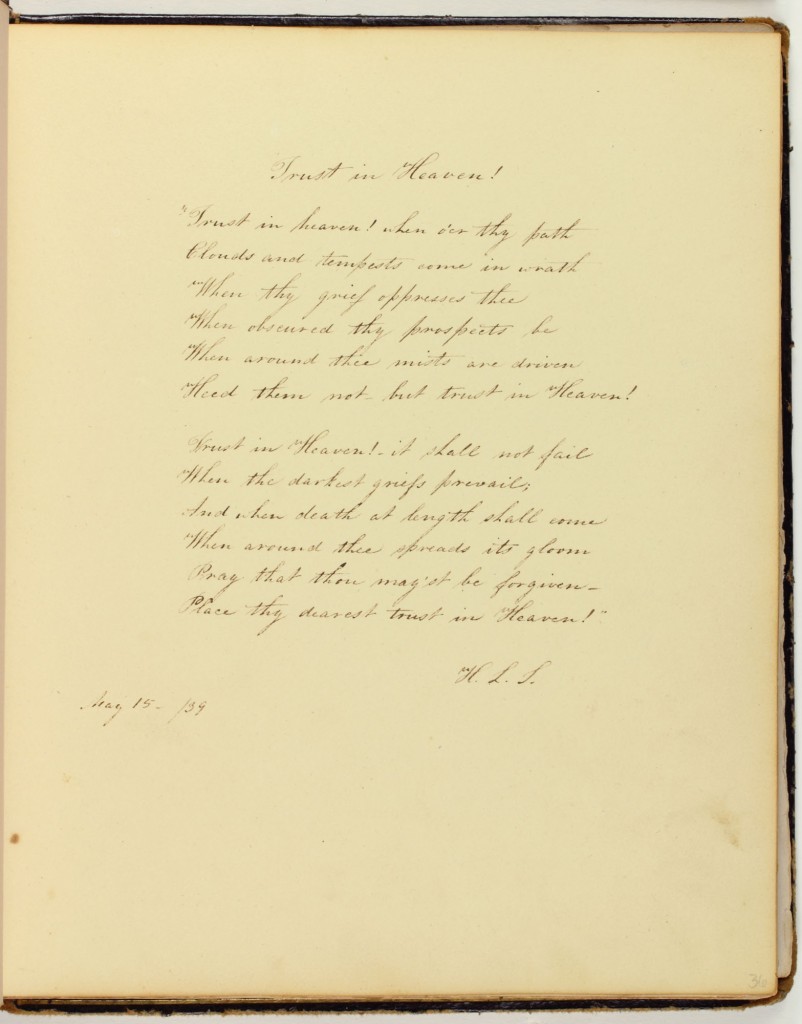 Trust in Heaven!
"Trust in heaven! when o'er thy path
Clouds and tempests come in wrath
When thy grief oppresses thee
When obscured thy prospects be
When around thee mists are driven
Heed them not - but trust in Heaven!
Trust in Heaven! - it shall not fail
When the darkest griefs prevail;
And when death at length shall come
When around thee spreads its gloom
Pray that thou may'st be forgiven -
Place thy dearest trust in Heaven!"
H. L. S.
May 15 - /39
36